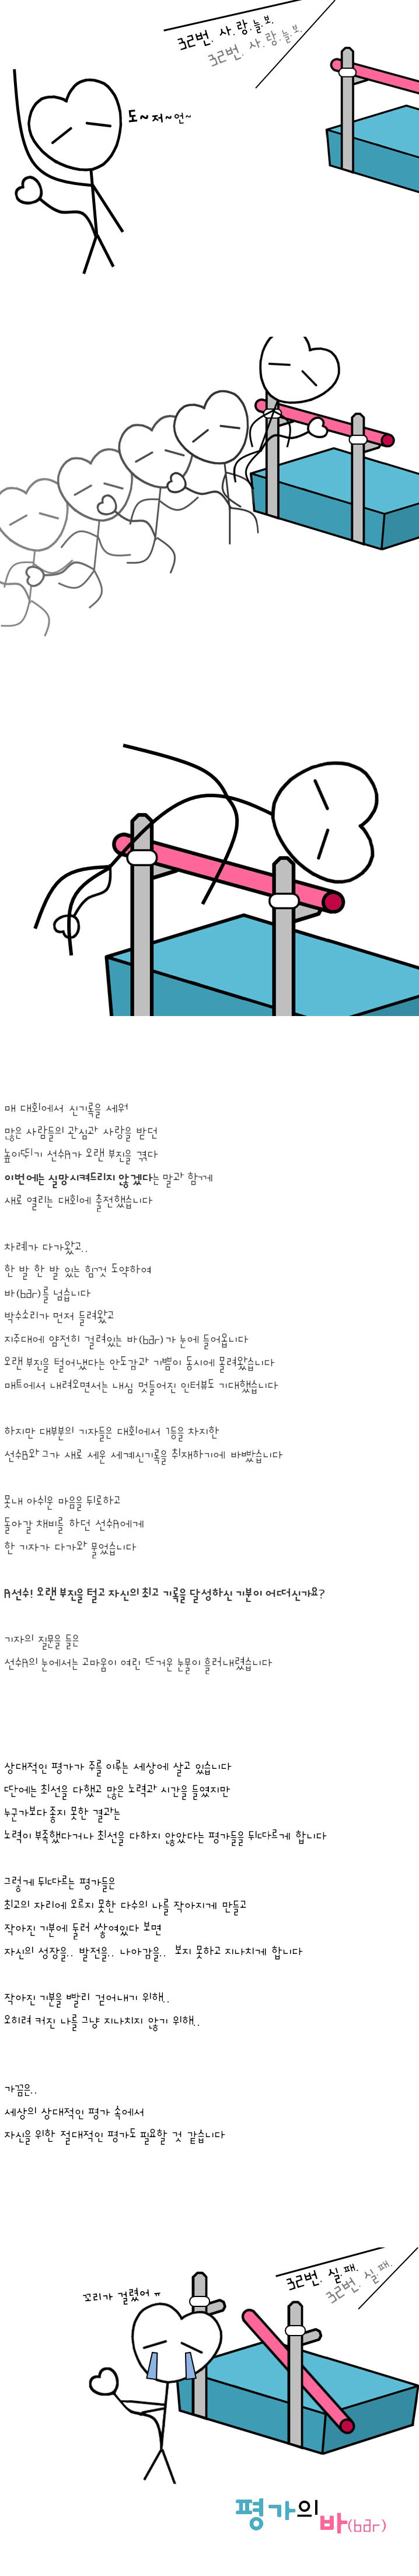 32번. 사.랑.늘.보.
32번. 사.랑.늘.보.
도~저~언~
매 대회에서 신기록을 세워
많은 사람들의 관심과 사랑을 받던
높이뛰기 선수A가 오랜 부진을 겪다
이번에는 실망시켜드리지 않겠다는 말과 함께
새로 열리는 대회에 출전했습니다
차례가 다가왔고..
한 발 한 발 있는 힘껏 도약하여
바(bar)를 넘습니다
박수소리가 먼저 들려왔고
지주대에 얌전히 걸려있는 바(bar)가 눈에 들어옵니다
오랜 부진을 털어냈다는 안도감과 기쁨이 동시에 몰려왔습니다
매트에서 내려오면서는 내심 멋들어진 인터뷰도 기대했습니다
하지만 대부분의 기자들은 대회에서 1등을 차지한
선수B와 그가 새로 세운 세계신기록을 취재하기에 바빴습니다
못내 아쉬운 마음을 뒤로하고
돌아갈 채비를 하던 선수A에게
한 기자가 다가와 물었습니다
A선수! 오랜 부진을 털고 자신의 최고 기록을 달성하신 기분이 어떠신가요?
기자의 질문을 들은
선수A의 눈에서는 고마움이 여린 뜨거운 눈물이 흘러내렸습니다
상대적인 평가가 주를 이루는 세상에 살고 있습니다
딴에는 최선을 다했고 많은 노력과 시간을 들였지만
누군가보다 좋지 못한 결과는
노력이 부족했다거나 최선을 다하지 않았다는 평가들을 뒤따르게 합니다
그렇게 뒤따르는 평가들은
최고의 자리에 오르지 못한 다수의 나를 작아지게 만들고
작아진 기분에 둘러 쌓여있다 보면
자신의 성장을.. 발전을.. 나아감을.. 보지 못하고 지나치게 합니다
작아진 기분을 빨리 걷어내기 위해..
오히려 커진 나를 그냥 지나치지 않기 위해..
가끔은..
세상의 상대적인 평가 속에서
자신을 위한 절대적인 평가도 필요할 것 같습니다
32번. 실.패.
32번. 실.패.
꼬리가 걸렸어 ㅠ
평가의 바(bar)